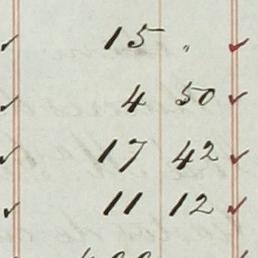 ✓ 15 " ✓
✓ 4 50 ✓
✓ 17 42 ✓
✓ 11 12 ✓